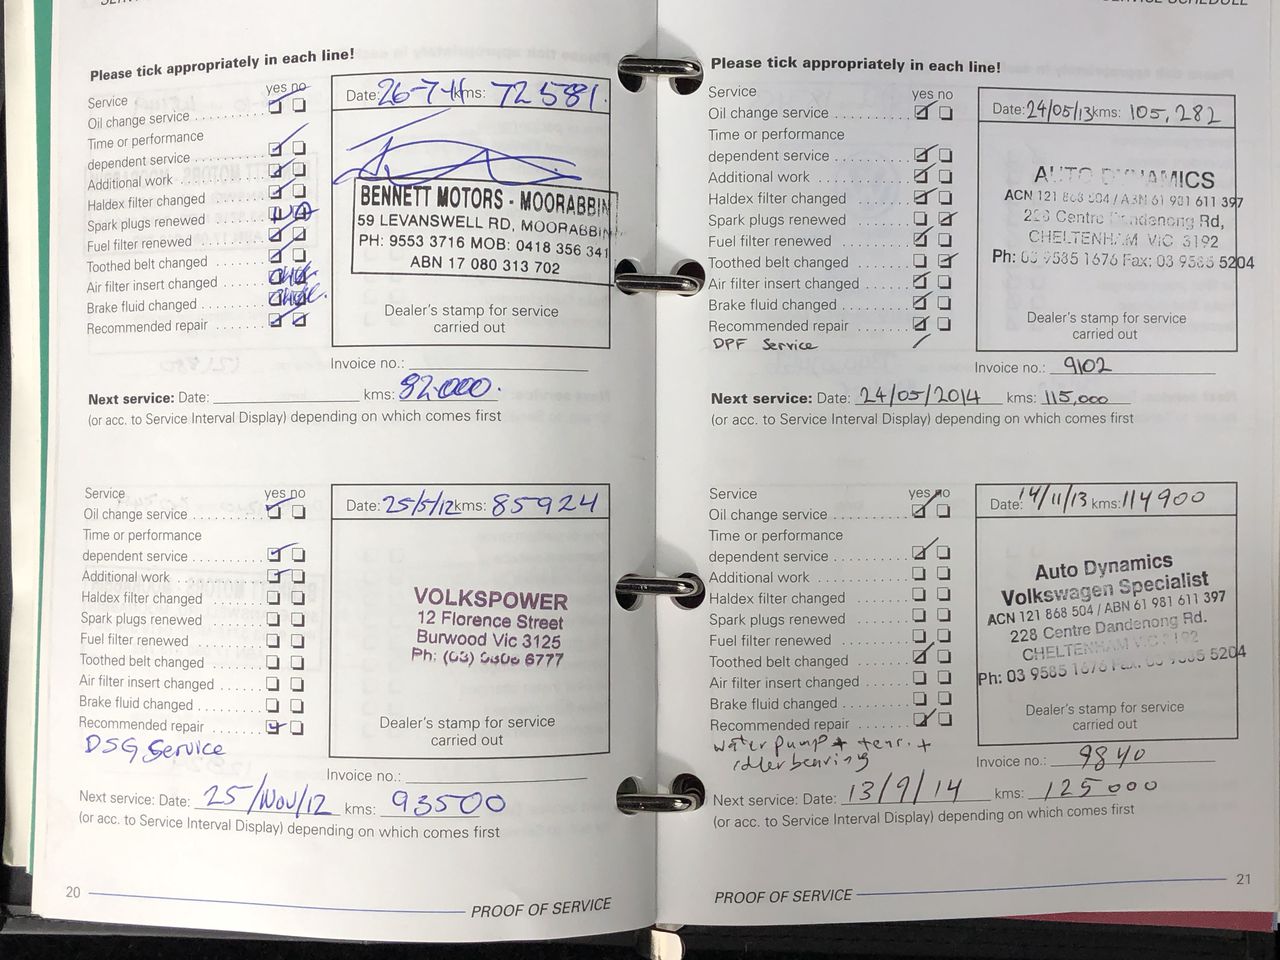 Please tick appropriately in each line!
Service yes no
Oil change service
Time or performance
dependent service
Additional work
Haldex filter changed
Spark plugs renewed N/A
Fuel filter renewed
Toothed belt changed
Air filter insert changed
Brake fluid changed
Recommended repair
Date: 26-7-11 kms: 72581.
BENNETT MOTORS - MOORABBIN
59 LEVANSWELL RD, MOORABBIN
PH: 9553 3716 MOB: 0418 356 341
ABN 17 080 313 702
Dealer's stamp for service
carried out
Invoice no.:
Next service: Date: kms: 82000.
(or acc. to Service Interval Display) depending on which comes first
Service yes no
Oil change service
Time or performance
dependent service
Additional work
Haldex filter changed
Spark plugs renewed
Fuel filter renewed
Toothed belt changed
Air filter insert changed
Brake fluid changed
Recommended repair
DSG Service
Date: 25/5/12 kms: 85924
VOLKSPOWER
12 Florence Street
Burwood Vic 3125
Ph: (03) 6777
Dealer's stamp for service
carried out
Invoice no.:
Next service: Date: 25/Nov/12 kms: 93500
(or acc. to Service Interval Display) depending on which comes first
20
PROOF OF SERVICE
SERVICE SCHEDULE
Please tick appropriately in each line!
Service yes no
Oil change service
Time or performance
dependent service
Additional work
Haldex filter changed
Spark plugs renewed
Fuel filter renewed
Toothed belt changed
Air filter insert changed
Brake fluid changed
Recommended repair
DPF Service
Date: 24/05/13 kms: 105,282
AUTO DYNAMICS
ACN 121 868 504 / ABN 61 981 611 397
228 Centre Dandenong Rd,
CHELTENHAM VIC 3192
Ph: 03 9585 1676 Fax: 03 9585 5204
Dealer's stamp for service
carried out
Invoice no.: 9102
Next service: Date: 24/05/2014 kms: 115,000
(or acc. to Service Interval Display) depending on which comes first
Service yes no
Oil change service
Time or performance
dependent service
Additional work
Haldex filter changed
Spark plugs renewed
Fuel filter renewed
Toothed belt changed
Air filter insert changed
Brake fluid changed
Recommended repair
water pump + tens. +
idler bearing
Date: 14/11/13 kms: 114900
Auto Dynamics
Volkswagen Specialist
ACN 121 868 504 / ABN 61 981 611 397
228 Centre Dandenong Rd.
CHELTENHAM VIC 3192
Ph: 03 9585 1676 Fax: 03 9585 5204
Dealer's stamp for service
carried out
Invoice no.: 9840
Next service: Date: 13/9/14 kms: 125000
(or acc. to Service Interval Display) depending on which comes first
PROOF OF SERVICE
21